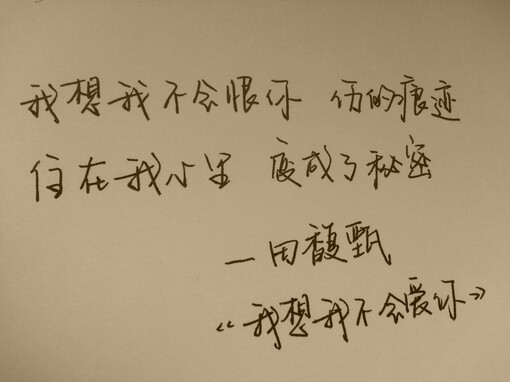 我想我不会恨你 伤的痕迹
住在我心里 变成了秘密
—田馥甄
《我想我不会爱你》